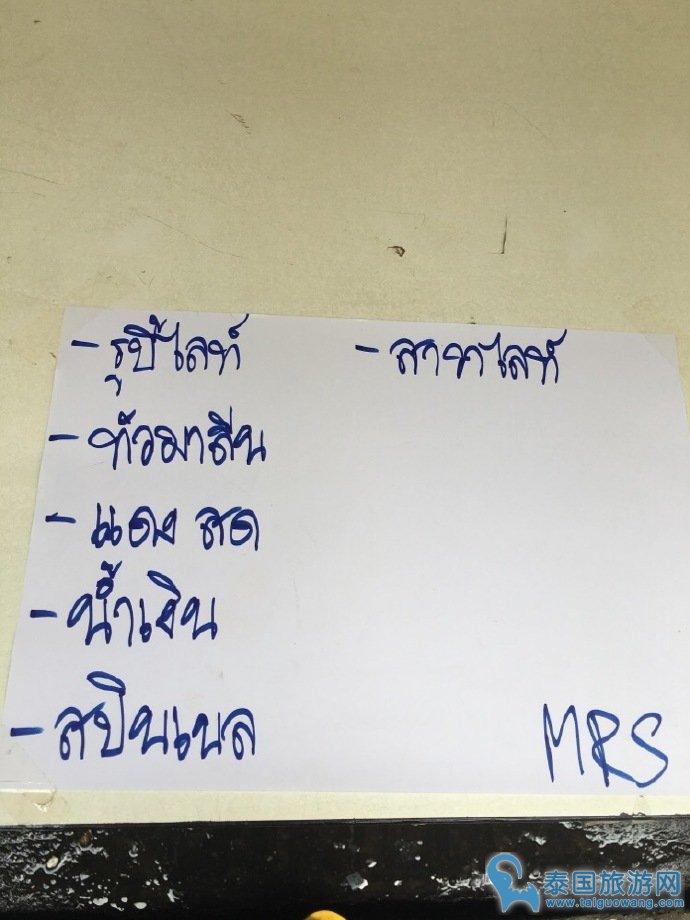 - รูบี้ไลท์
- ทัวมาลีน
- แดง สด
- น้ำเงิน
- สปินเนล
MRS
泰国旅游网
www.taiguowang.com